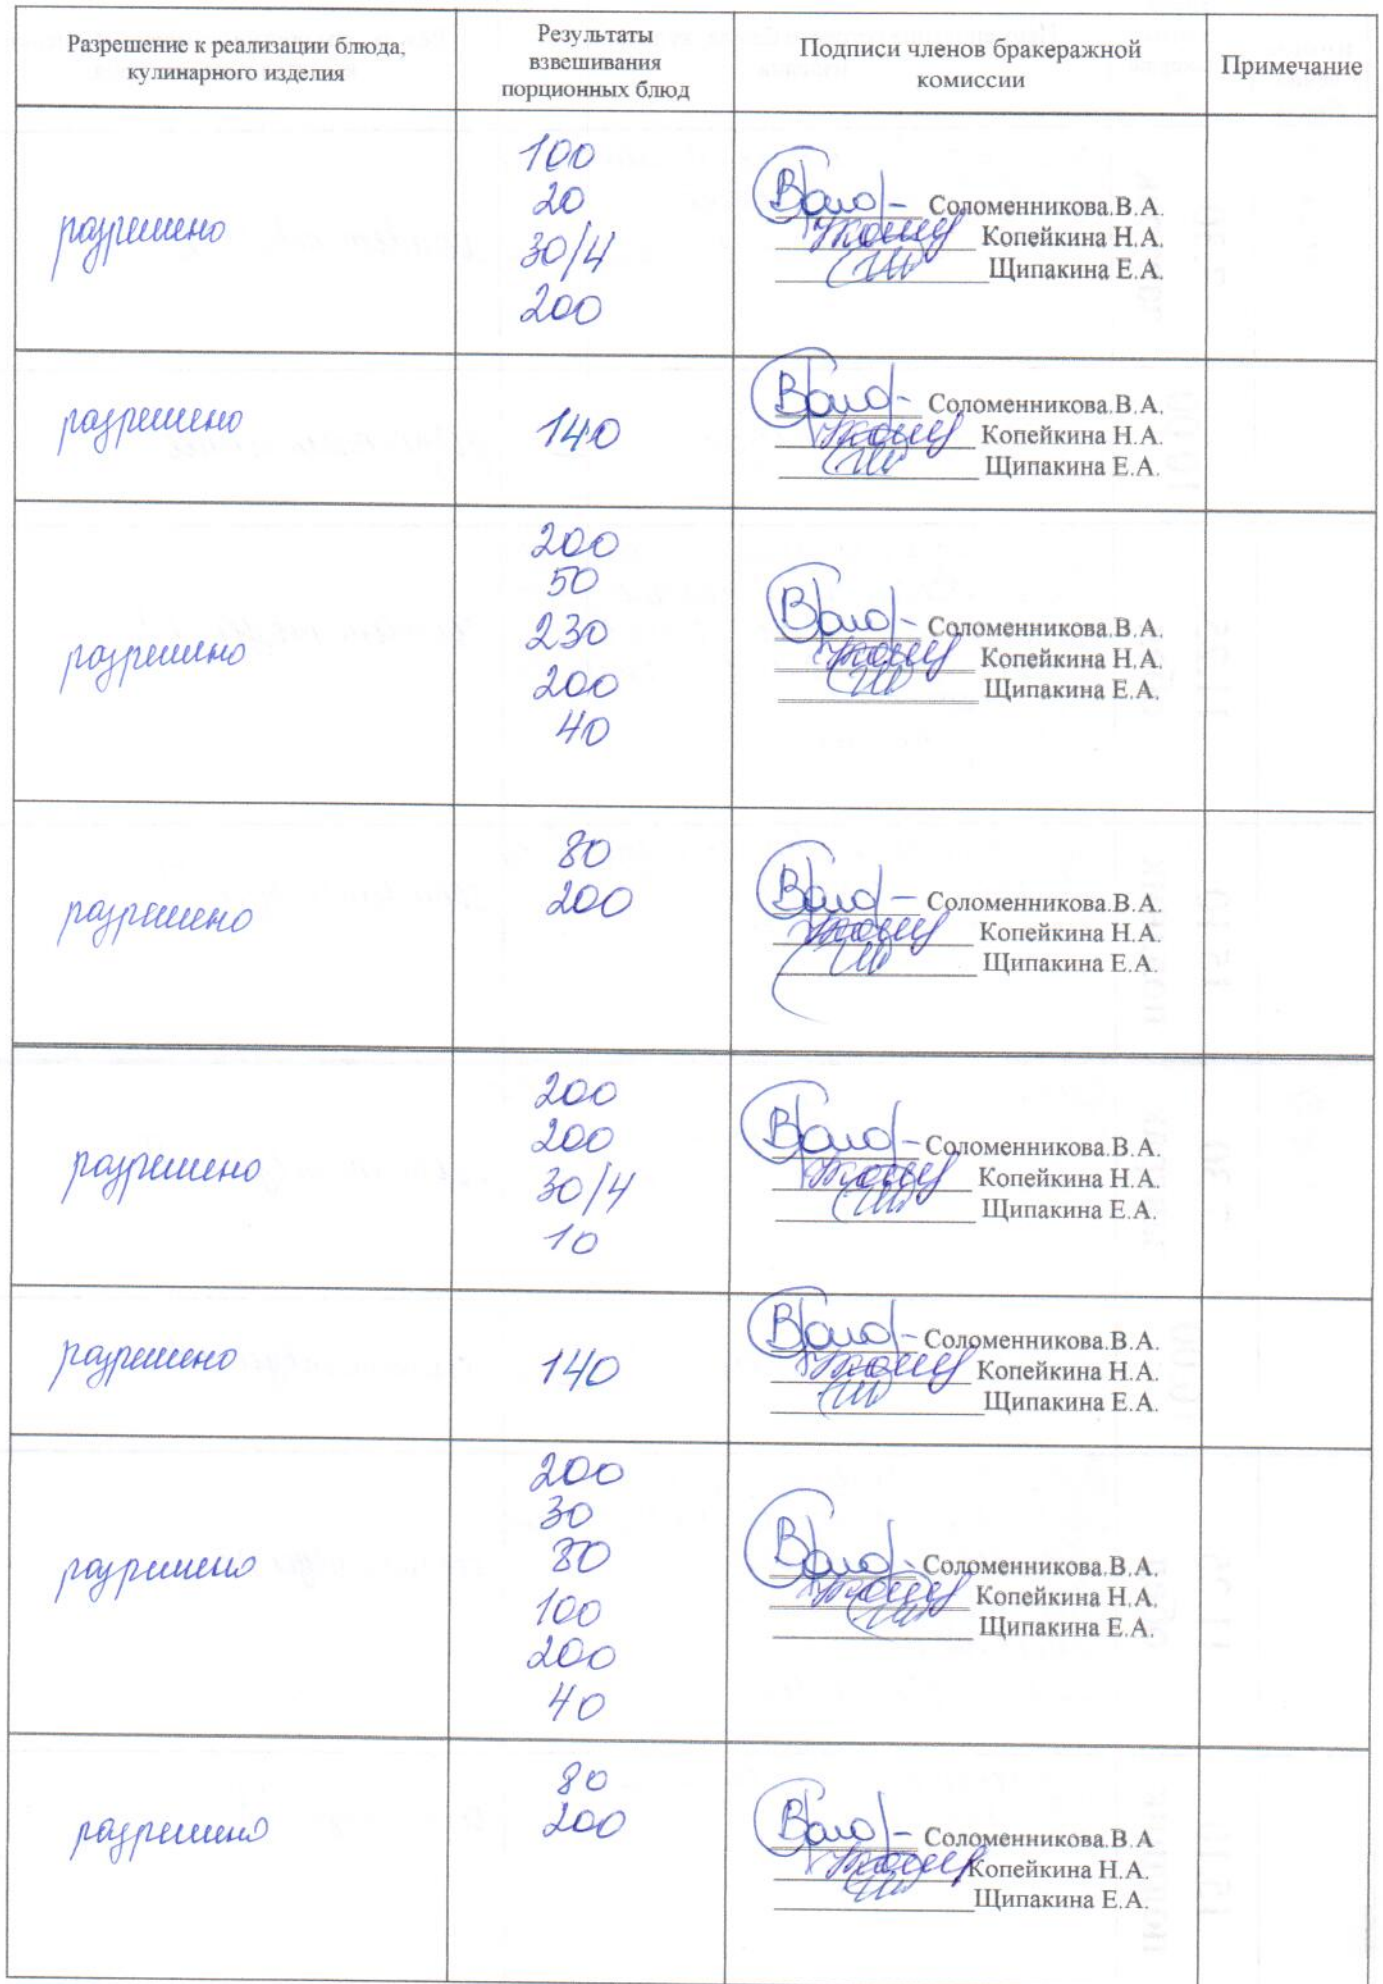 Разрешение к реализации блюда,
кулинарного изделия
Результаты
взвешивания
порционных блюд
Подписи членов бракеражной
комиссии
Примечание
разрешено
100
20
30/4
200
Соломенникова.В.А.
Копейкина Н.А.
Щипакина Е.А.
разрешено
140
Соломенникова.В.А.
Копейкина Н.А.
Щипакина Е.А.
разрешено
200
50
230
200
40
Соломенникова.В.А.
Копейкина Н.А.
Щипакина Е.А.
разрешено
80
200
Соломенникова.В.А.
Копейкина Н.А.
Щипакина Е.А.
разрешено
200
200
30/4
10
Соломенникова.В.А.
Копейкина Н.А.
Щипакина Е.А.
разрешено
140
Соломенникова.В.А.
Копейкина Н.А.
Щипакина Е.А.
разрешено
200
30
80
100
200
40
Соломенникова.В.А.
Копейкина Н.А.
Щипакина Е.А.
разрешено
80
200
Соломенникова.В.А
Копейкина Н.А.
Щипакина Е.А.